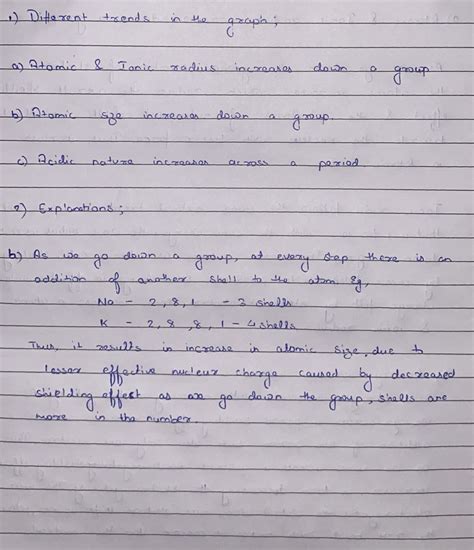 1) Different trends in the graph;
a) Atomic & Ionic radius increases down a group
b) Atomic size increases down a group.
c) Acidic nature increases across a period
2) Explanations;
b) As we go down a group, at every step there is an
addition of another shell to the atom. Eg,
Na - 2,8,1 - 3 shells
K - 2,8,8,1 - 4 shells
Thus, it results in increase in atomic size, due to
lesser effective nuclear charge caused by decreased
shielding effect as we go down the group, shells are
more in the number.